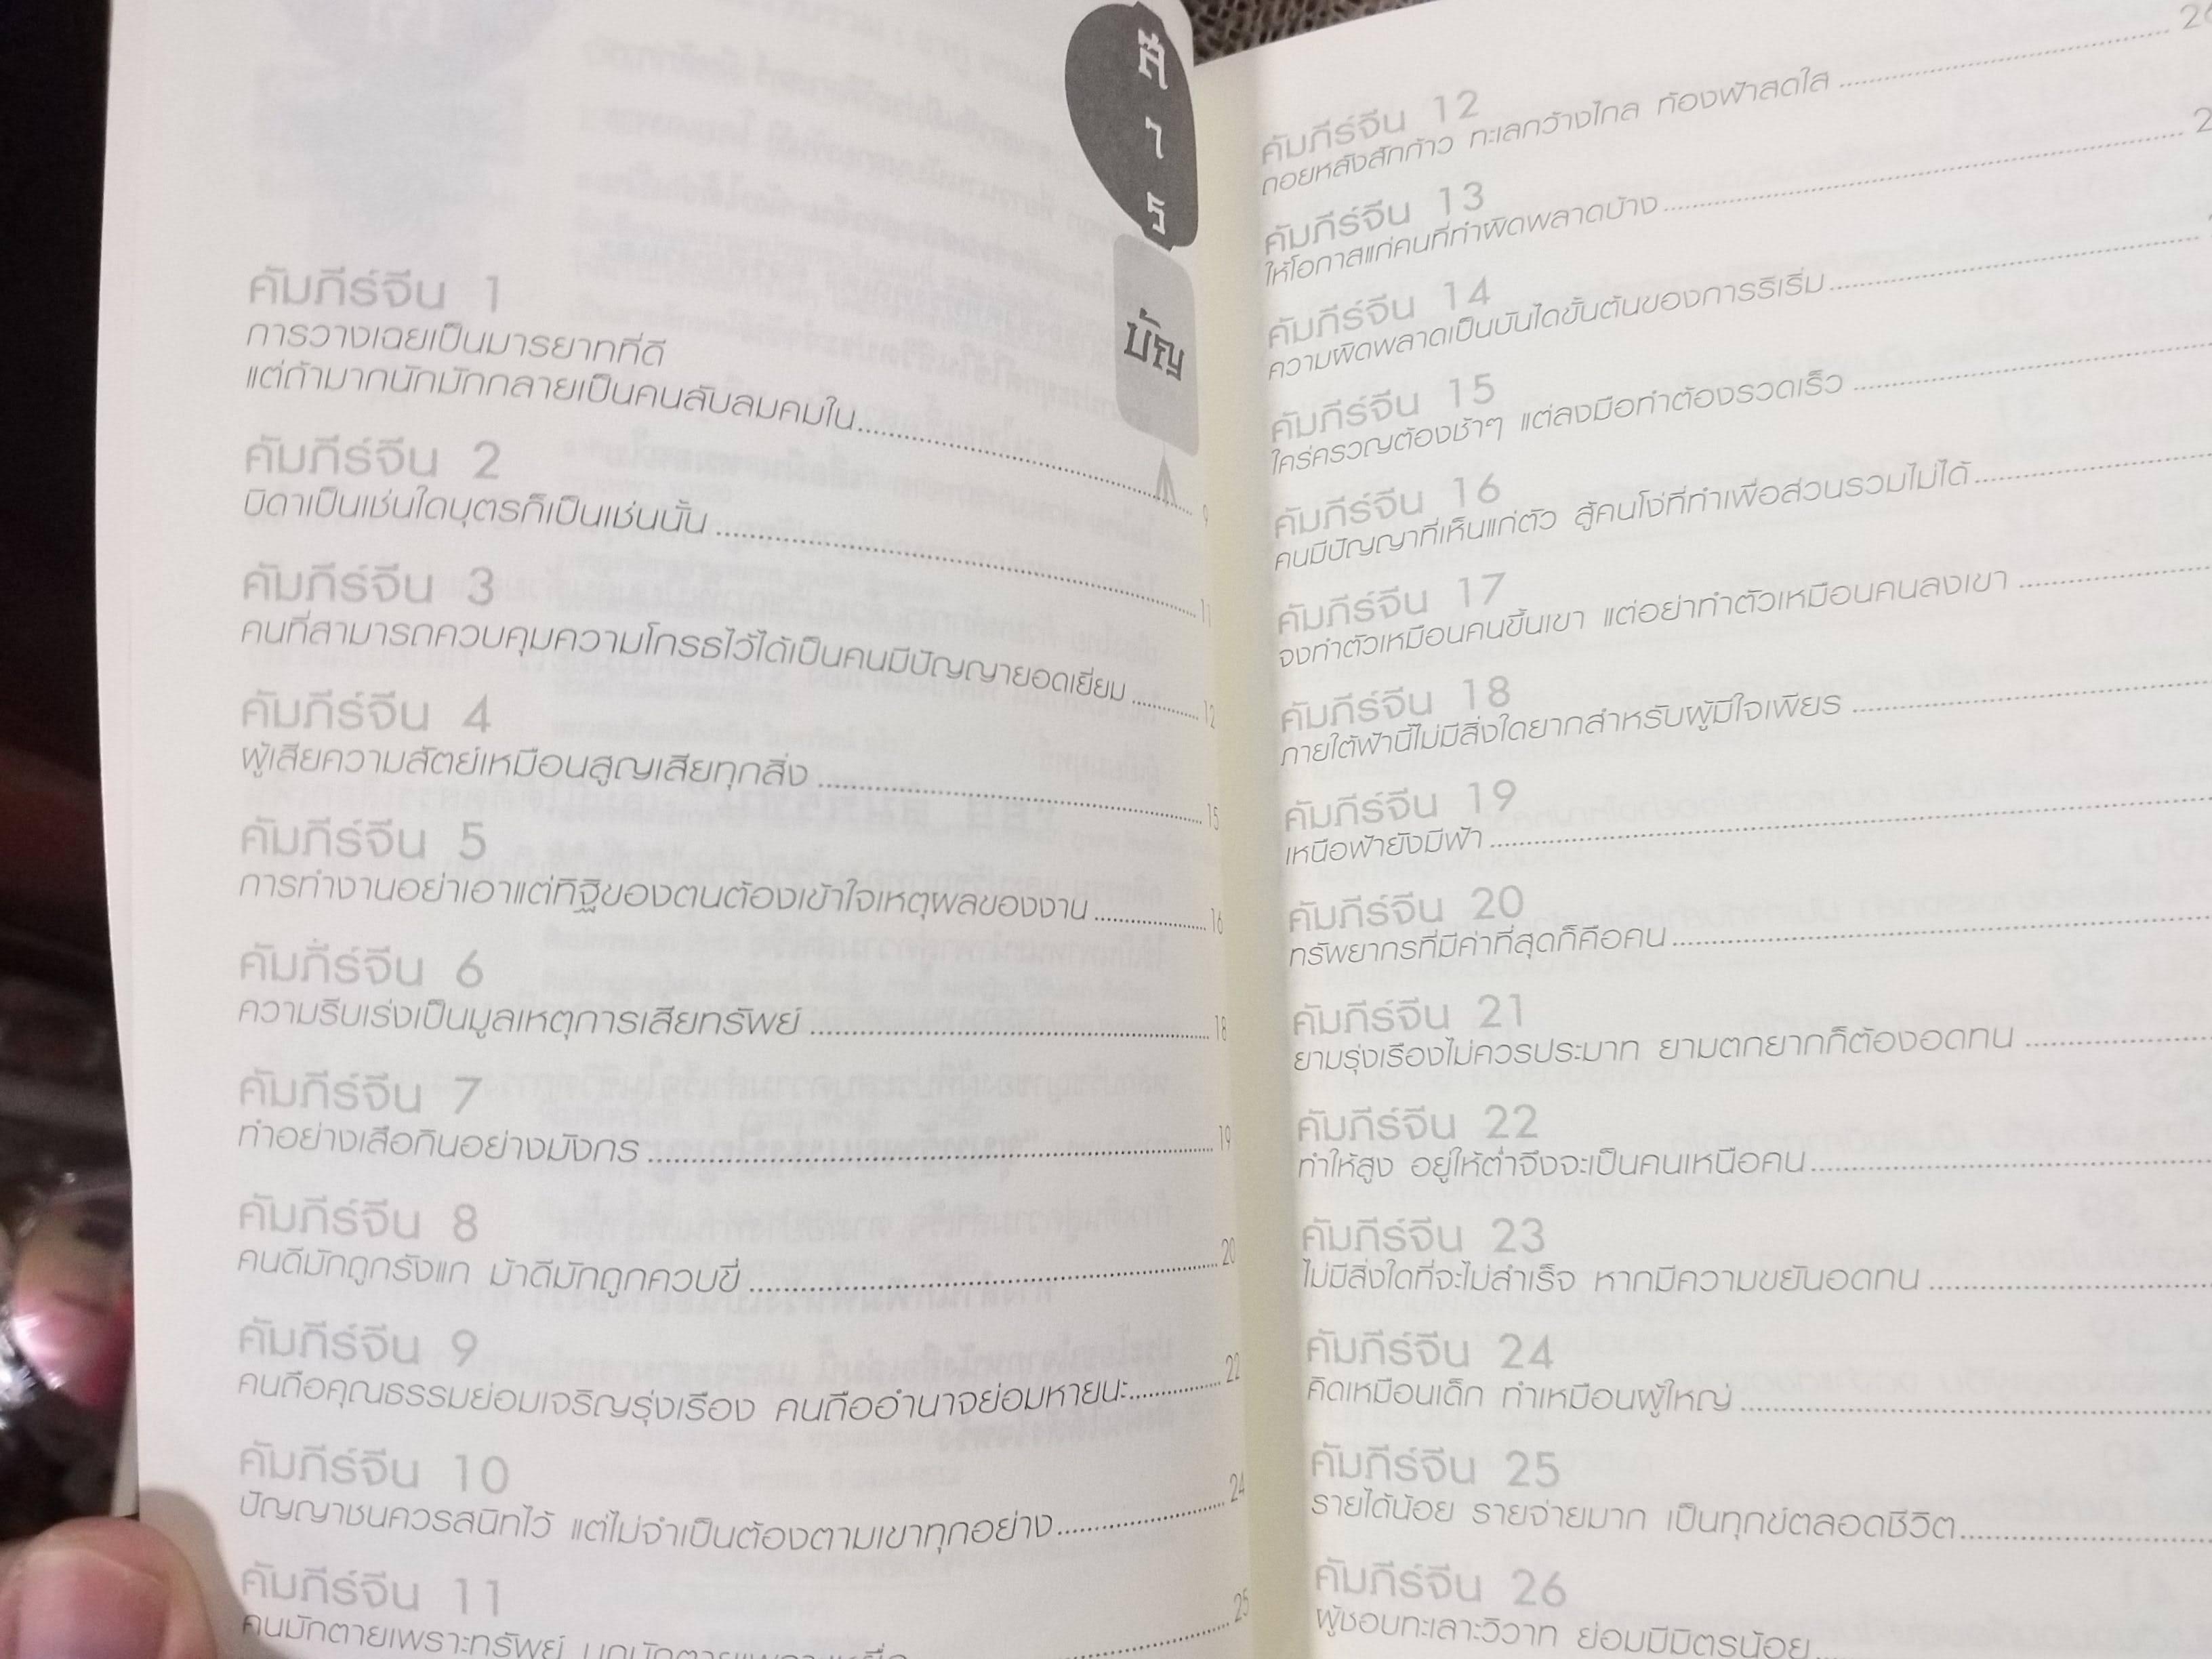 สาร
บัญ
คัมภีร์จีน 1
การวางเฉยเป็นมารยาทที่ดี
แต่ถ้ามากนักมักกลายเป็นคนลับลมคมใน.......... 9
คัมภีร์จีน 2
บิดาเป็นเช่นใดบุตรก็เป็นเช่นนั้น.......... 11
คัมภีร์จีน 3
คนที่สามารถควบคุมความโกรธไว้ได้เป็นคนมีปัญญายอดเยี่ยม.......... 12
คัมภีร์จีน 4
ผู้เสียความสัตย์เหมือนสูญเสียทุกสิ่ง.......... 15
คัมภีร์จีน 5
การทำงานอย่าเอาแต่ทิฐิของตนต้องเข้าใจเหตุผลของงาน.......... 16
คัมภีร์จีน 6
ความรีบเร่งเป็นมูลเหตุการเสียทรัพย์.......... 18
คัมภีร์จีน 7
ทำอย่างเสือกินอย่างมังกร.......... 19
คัมภีร์จีน 8
คนดีมักถูกรังแก ม้าดีมักถูกควบขี่.......... 20
คัมภีร์จีน 9
คนถือคุณธรรมย่อมเจริญรุ่งเรือง คนถืออำนาจย่อมหายนะ.......... 22
คัมภีร์จีน 10
ปัญญาชนควรสนิทไว้ แต่ไม่จำเป็นต้องตามเขาทุกอย่าง.......... 24
คัมภีร์จีน 11
คนมักตายเพราะทรัพย์ .......... 25
คัมภีร์จีน 12
ถอยหลังสักก้าว ทะเลกว้างไกล ท้องฟ้าสดใส..........
คัมภีร์จีน 13
ให้โอกาสแก่คนที่ทำผิดพลาดบ้าง..........
คัมภีร์จีน 14
ความผิดพลาดเป็นบันไดขั้นต้นของการริเริ่ม..........
คัมภีร์จีน 15
ใคร่ครวญต้องช้าๆ แต่ลงมือทำต้องรวดเร็ว..........
คัมภีร์จีน 16
คนมีปัญญาที่เห็นแก่ตัว สู้คนโง่ที่ทำเพื่อส่วนรวมไม่ได้..........
คัมภีร์จีน 17
จงทำตัวเหมือนคนขึ้นเขา แต่อย่าทำตัวเหมือนคนลงเขา..........
คัมภีร์จีน 18
ภายใต้ฟ้านี้ไม่มีสิ่งใดยากสำหรับผู้มีใจเพียร..........
คัมภีร์จีน 19
เหนือฟ้ายังมีฟ้า..........
คัมภีร์จีน 20
ทรัพยากรที่มีค่าที่สุดก็คือคน..........
คัมภีร์จีน 21
ยามรุ่งเรืองไม่ควรประมาท ยามตกยากก็ต้องอดทน..........
คัมภีร์จีน 22
ทำให้สูง อยู่ให้ต่ำจึงจะเป็นคนเหนือคน..........
คัมภีร์จีน 23
ไม่มีสิ่งใดที่จะไม่สำเร็จ หากมีความขยันอดทน..........
คัมภีร์จีน 24
คิดเหมือนเด็ก ทำเหมือนผู้ใหญ่..........
คัมภีร์จีน 25
รายได้น้อย รายจ่ายมาก เป็นทุกข์ตลอดชีวิต..........
คัมภีร์จีน 26
ผู้ชอบทะเลาะวิวาท ย่อมมีมิตรน้อย..........